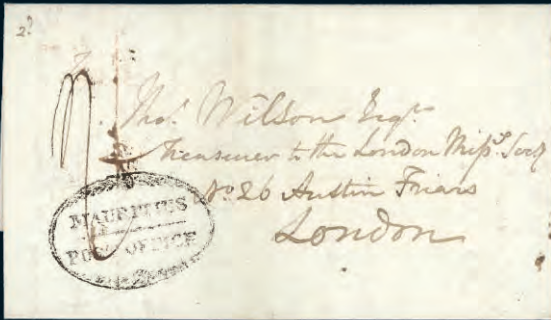 2
Thos. Wilson Esqre
Treasurer to the London Missy. Socy
No 26 Austin Friars
London
MAURITIUS
POST OFFICE